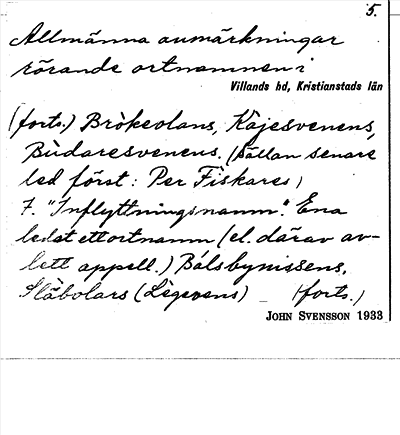 5.
Allmänna anmärkningar
rörande ortnamnen i
Villands hd, Kristianstads län
(forts.) Bròkeolans, Kàjesvenens,
Bùdaresvenens. (Sällan senare
led först: Per Fiskares)
7. "Inflyttningsnamn". Ena
ledet ett ortnamn (el. därav av-
lett appell.) Bálsbynissens,
Slàbolars (Lègevens) _ (forts.)
JOHN SVENSSON 1933